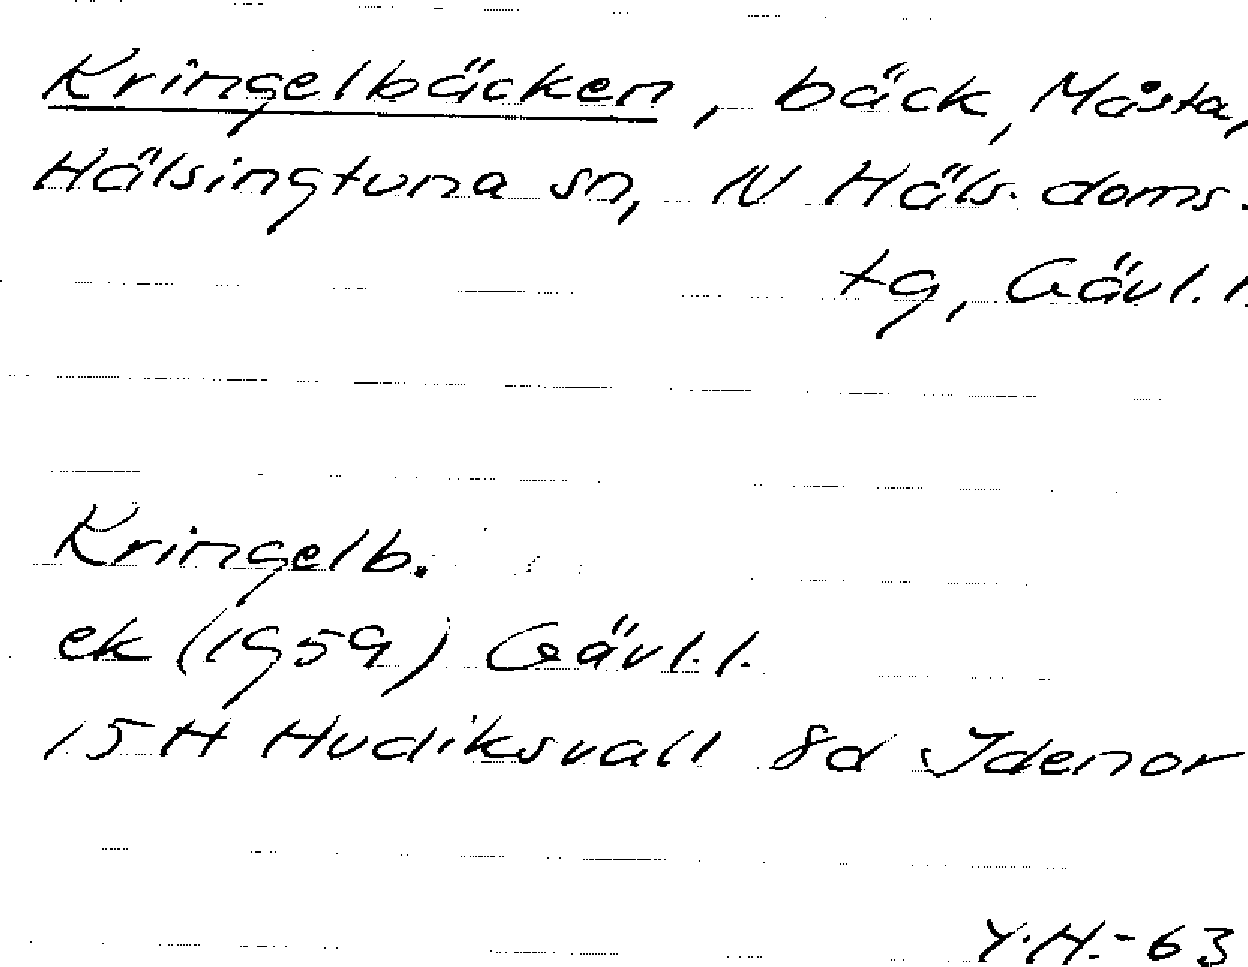 Kringelbäcken, bäck, Måsta,
Hälsingtuna sn, N Häls. doms.
tg, Gävl.l.
Kringelb.
ek (1959) Gävl.l.
15 H Hudiksvall 8d Idenor
Y.H.-63